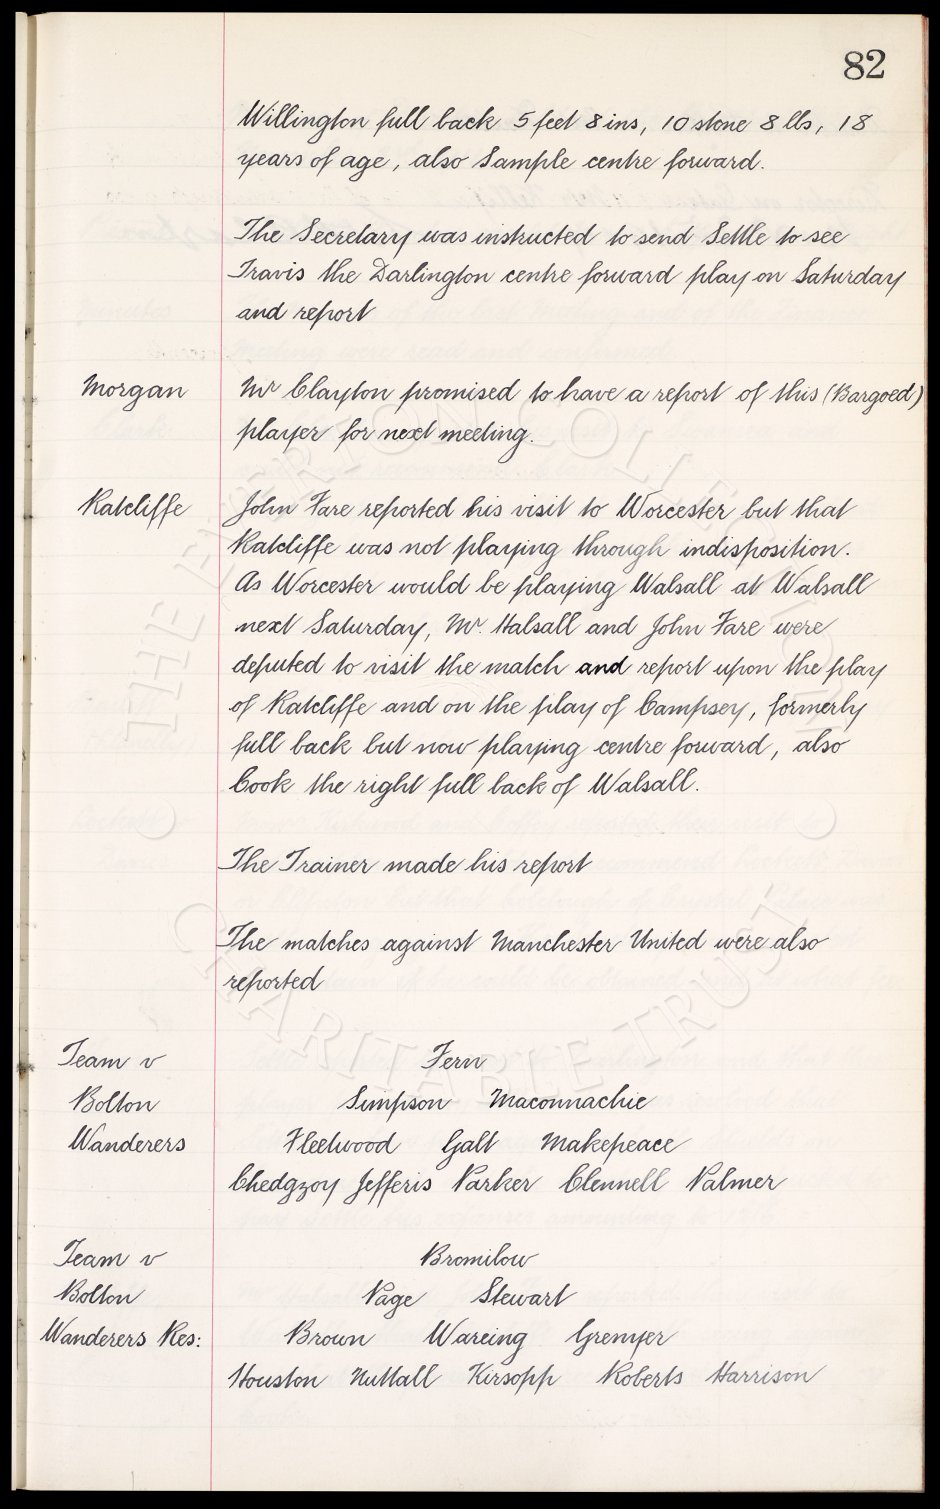 82
Willington full back 5 feet 8 ins, 10 stone 8 lbs, 18
years of age, also Sample centre forward.
The Secretary was instructed to send Settle to see
Travis the Darlington centre forward play on Saturday
and report
Morgan Mr Clayton promised to have a report of this (Bargoed)
player for next meeting.
Ratcliffe John Fare reported his visit to Worcester but that
Ratcliffe was not playing through indisposition.
As Worcester would be playing Walsall at Walsall
next Saturday, Mr. Halsall and John Fare were
deputed to visit the match and report upon the play
of Ratcliffe and on the play of Campsey, formerly
full back but now playing centre forward, also
Cook the right full back of Walsall.
The Trainer made his report
The matches against Manchester United were also
reported
Team v Fern
Bolton Simpson Maconnachie
Wanderers Fleetwood Galt Makepeace
Chedgzoy Jefferis Parker Clennell Palmer
Team v Bromilow
Bolton Page Stewart
Wanderers Res: Brown Wareing Grenyer
Houston Nuttall Kirsopp Roberts Harrison
THE EVERTON COLLECTION
CHARITABLE TRUST